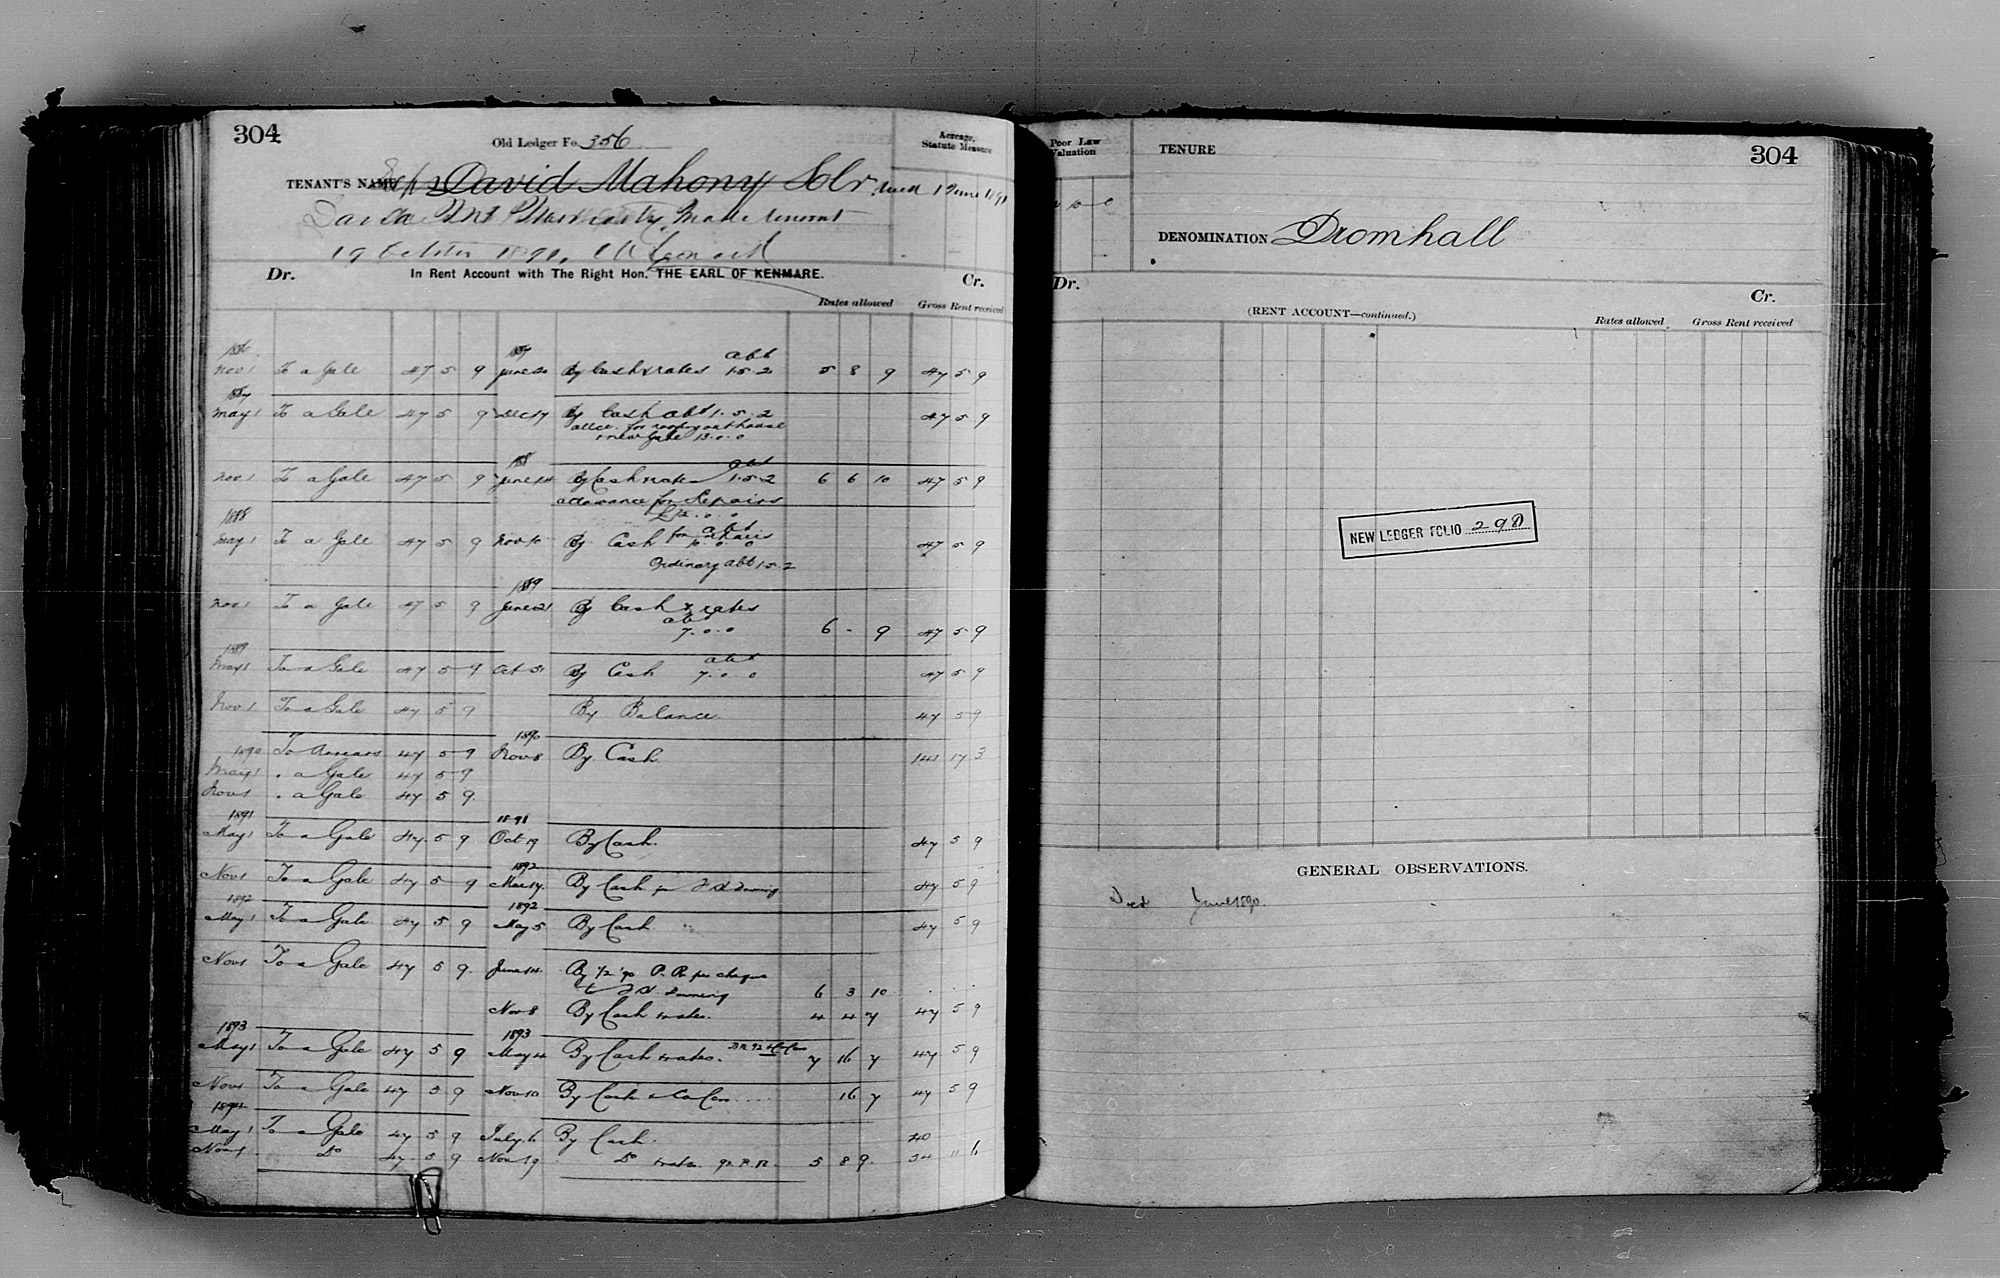 304
Old Ledger Fo. 356
Acreage, Statute Measure
TENANT'S NAME Reps David Mahony Solr died 1 June 1890
made tenant
19 October 1891.
Dr. In Rent Account with The Right Hon. THE EARL OF KENMARE. Cr.
Rates allowed Gross Rent received
1886 1887 abt
Nov 1 To a Gale 47 5 9 June 20 By Cash & rates 1-5-2 5 8 9 47 5 9
1887
May 1 To a Gale 47 5 9 Dec 17 By Cash abt 1-5-2 47 5 9
allce. for roofing out house
& new Gate 13-0-0
1888 abt
Nov 1 To a Gale 47 5 9 June 14 By Cash & rates 1-5-2 6 6 10 47 5 9
allowance for Repairs
1888
May 1 To a Gale 47 5 9 Nov 10 By Cash for repairs abt 47 5 9
Ordinary abt 1-5-2
1889
Nov 1 To a Gale 47 5 9 June 21 By Cash & rates
abt
7-0-0 6 - 9 47 5 9
1889 abt
May 1 To a Gale 47 5 9 Oct 31 By Cash 7-0-0 47 5 9
Nov 1 To a Gale 47 5 9 By Balance 47 5 9
1890
1890 To Arrears 47 5 9 Nov 8 By Cash 141 17 3
May 1 . a Gale 47 5 9
Nov 1 . a Gale 47 5 9
1891 1891
May 1 To a Gale 47 5 9 Oct 19 By Cash. 47 5 9
1892
Nov 1 To a Gale 47 5 9 Mar 17 By Cash per F H Downing 47 5 9
1892 1892
May 1 To a Gale 47 5 9 May 5 By Cash 47 5 9
Nov 1 To a Gale 47 5 9 June 14 By 1/2 '90 P. R. per cheque
to F H Downing 6 3 10
Nov 8 By Cash & rates. 4 4 7 47 5 9
1893 1893
May 1 To a Gale 47 5 9 May 4 By Cash & rates. 7 16 7 47 5 9
Nov 1 To a Gale 47 5 9 Nov 10 By Cash & Co Cess 16 7 47 5 9
1894
May 1 To a Gale 47 5 9 July 6 By Cash. 40
Nov 1 Do 47 5 9 Nov 19 Do & rates 92 P.R. 5 8 9 34 11 6
Poor Law Valuation
TENURE
304
DENOMINATION Dromhall
Dr. Cr.
(RENT ACCOUNT—continued.) Rates allowed Gross Rent received
NEW LEDGER FOLIO 290
GENERAL OBSERVATIONS.
Died June 1890